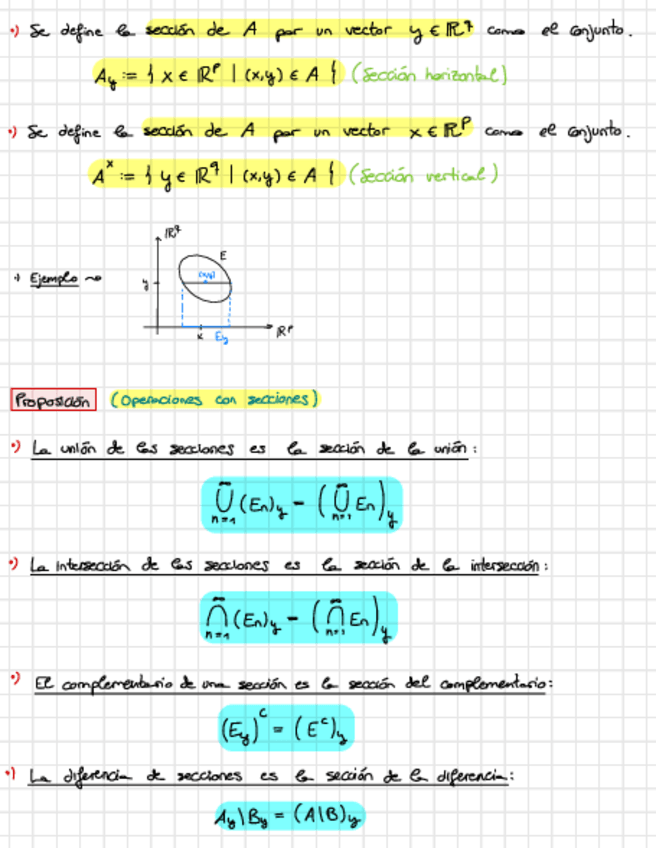 •) Se define la sección de A por un vector y ∈ ℝ^q como el conjunto.
A_y := { x ∈ ℝ^p | (x,y) ∈ A } (Sección horizontal)
•) Se define la sección de A por un vector x ∈ ℝ^p como el conjunto.
A^x := { y ∈ ℝ^q | (x,y) ∈ A } (Sección vertical)
ℝ^q
E
•) Ejemplo ⇝
(x,y)
y
ℝ^p
x E_y
Proposición (Operaciones con secciones)
•) La unión de las secciones es la sección de la unión:
⋃_{n=1}^∞ (E_n)_y = (⋃_{n=1}^∞ E_n)_y
•) La intersección de las secciones es la sección de la intersección:
⋂_{n=1}^∞ (E_n)_y = (⋂_{n=1}^∞ E_n)_y
•) El complementario de una sección es la sección del complementario:
(E_y)^c = (E^c)_y
•) La diferencia de secciones es la sección de la diferencia:
A_y \ B_y = (A\B)_y